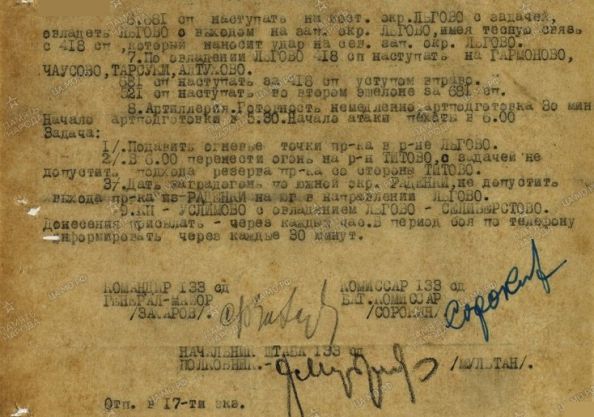 8.681 сп наступать на вост. окр.ЛЬГОВО с задачей,
овладеть ЛЬГОВО с выходом на зап. окр. ЛЬГОВО,имея тесную связь
с 418 сп ,который наносит удар на сев. зап. окр. ЛЬГОВО.
7.По овладении ЛЬГОВО 418 сп наступать на ГАРМОНОВО,
ЧАУСОВО,
681 сп наступать за 418 сп уступом вправо.
521 сп наступать во втором эшелоне за 681 сп.
8.Артиллерия.Готовность немедленно артподготовка 30 мин
Начало артподготовки в 5.30.Начало атаки пехоты в 6.00
Задача:
1/.Подавить огневые точки пр-ка в р-не ЛЬГОВО.
2/.В 6.00 перенести огонь на р-н ТИТОВО,с задачей не
допустить подхода резерва пр-ка со стороны ТИТОВО.
3/.Дать заградогонь по южной окр. РАДЕНКИ,не допустить
выхода пр-ка из РАДЕНКИ на юг в направлении ЛЬГОВО.
9.КП - УСЛИМОВО с овладением ЛЬГОВО - СЕЛИВЕРСТОВО.
Донесения присылать - через каждый час.В период боя по телефону
информировать через каждые 30 минут.
КОМАНДИР 133 сд КОМИССАР 133 сд
ГЕНЕРАЛ-МАЙОР БАТ.КОМИССАР
/ЗАХАРОВ/. /СОРОКИН/ Сорокин
НАЧАЛЬНИК ШТАБА 133 сд
ПОЛКОВНИК.- /МУЛЬТАН/.
Отп. в 17-ти экз.